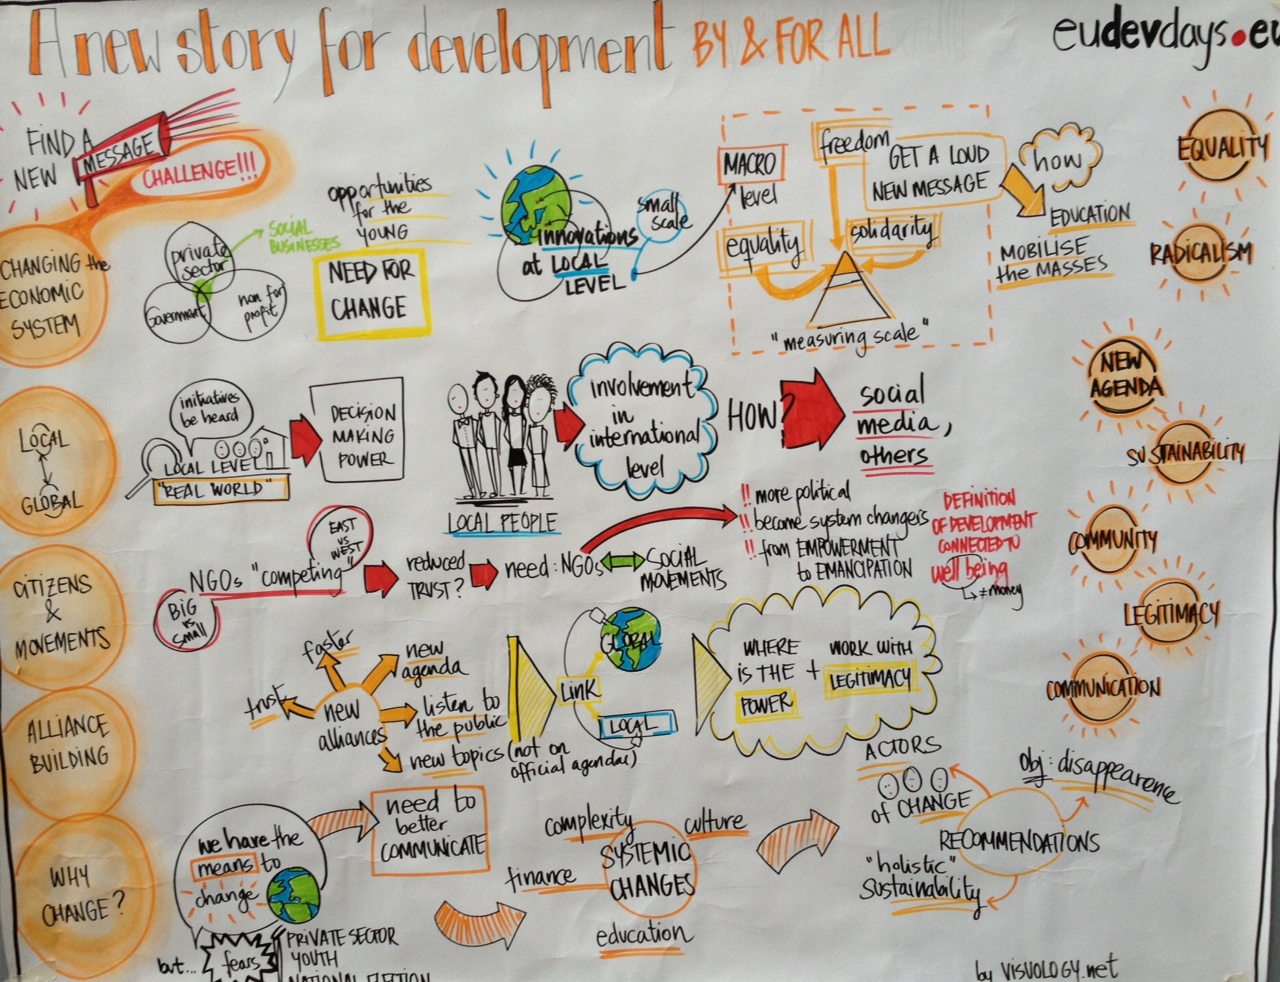 A new story for development BY & FOR ALL
eudevdays.eu
FIND A
NEW
MESSAGE
CHALLENGE!!!
CHANGING the
ECONOMIC
SYSTEM
private
sector
Government
non for
profit
SOCIAL
BUSINESSES
opportunities
for the
YOUNG
NEED FOR
CHANGE
innovations
at LOCAL
LEVEL
small
scale
MACRO
level
freedom
equality
solidarity
"measuring scale"
GET A LOUD
NEW MESSAGE
how
EDUCATION
MOBILISE
the MASSES
EQUALITY
RADICALISM
NEW
AGENDA
SUSTAINABILITY
COMMUNITY
LEGITIMACY
COMMUNICATION
LOCAL
GLOBAL
initiatives
be heard
LOCAL LEVEL
"REAL WORLD"
DECISION
MAKING
POWER
LOCAL PEOPLE
involvement
in
international
level
HOW?
social
media,
others
CITIZENS
&
MOVEMENTS
NGOs "competing"
EAST
vs
WEST
BIG
vs
small
reduced
TRUST?
need: NGOs
SOCIAL
MOVEMENTS
!! more political
!! become system changers
!! from EMPOWERMENT
to EMANCIPATION
DEFINITION
OF DEVELOPMENT
CONNECTED TO
well being
≠money
ALLIANCE
BUILDING
new
alliances
trust
faster
new
agenda
listen to
the public
new topics (not on
official agendas)
LINK
GLOBAL
LOCAL
WHERE
IS THE
POWER
+
WORK WITH
LEGITIMACY
WHY
CHANGE?
we have the
means to
change
but...
fears
PRIVATE SECTOR
YOUTH
NATIONAL ELECTION
need to
better
COMMUNICATE
SYSTEMIC
CHANGES
complexity
culture
finance
education
ACTORS
of CHANGE
RECOMMENDATIONS
obj: disappearence
"holistic"
sustainability
by VISUOLOGY.net